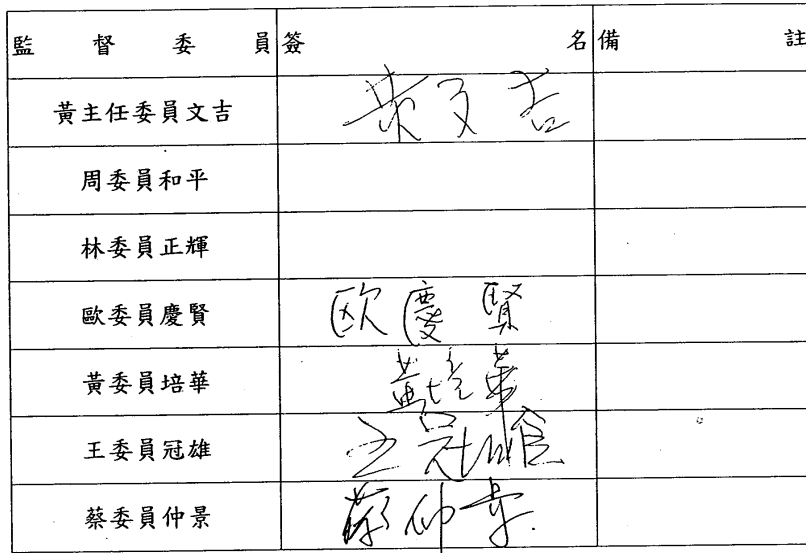 監督委員 簽名 備註
黃主任委員文吉 黃文吉
周委員和平
林委員正輝
歐委員慶賢 歐慶賢
黃委員培華 黃培華
王委員冠雄 王冠雄
蔡委員仲景 蔡仲景